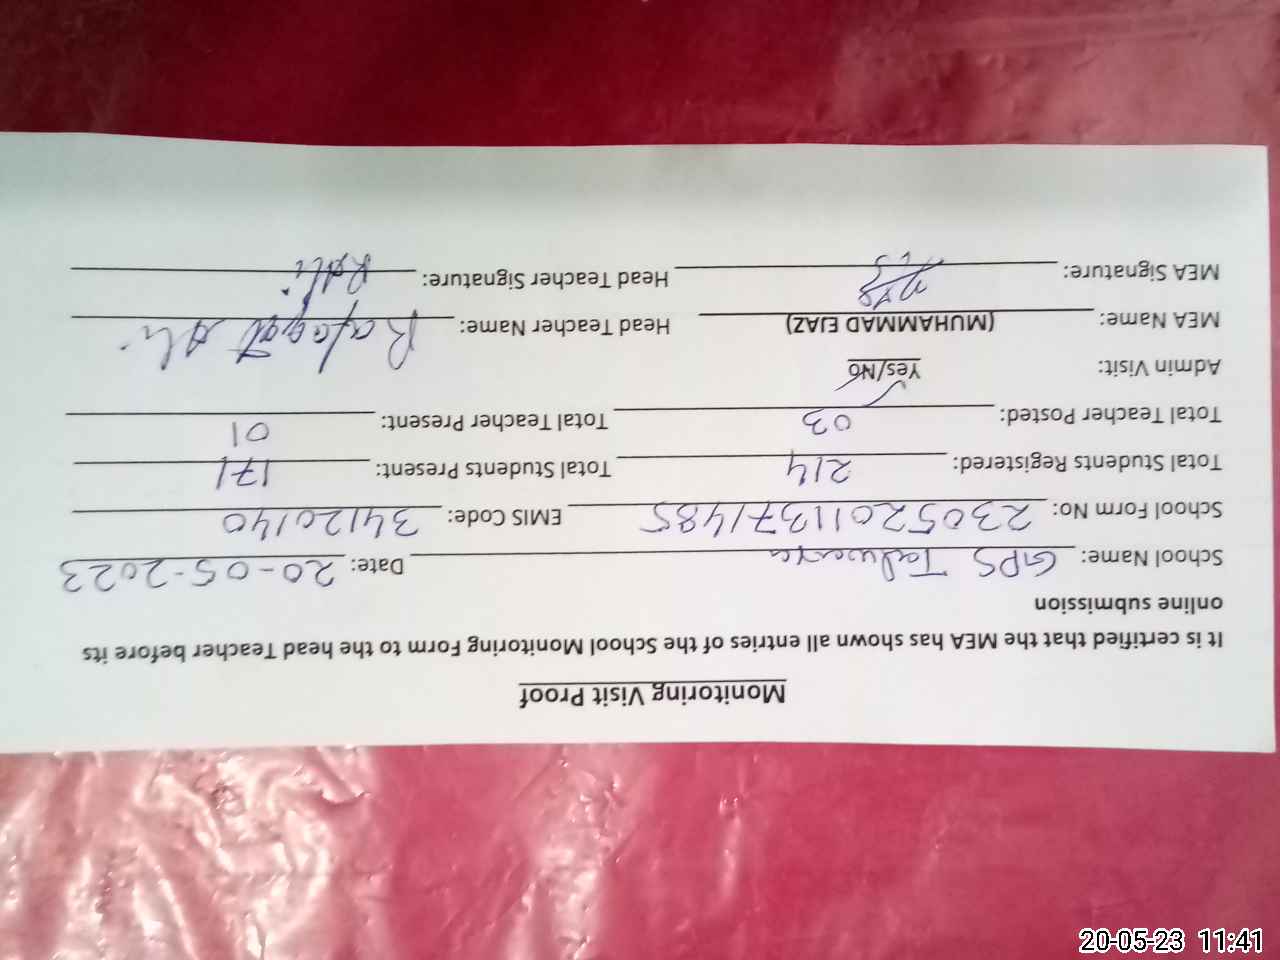 Monitoring Visit Proof
It is certified that the MEA has shown all entries of the School Monitoring Form to the head Teacher before its
online submission
School Name: GPS Talwara Date: 20-05-2023
School Form No: 23052011371485 EMIS Code: 34120140
Total Students Registered: 214 Total Students Present: 171
Total Teacher Posted: 03 Total Teacher Present: 01
Admin Visit: Yes/No
MEA Name: (MUHAMMAD EJAZ) Head Teacher Name: Rafaqat Ali
MEA Signature: Head Teacher Signature: R Ali
20-05-23 11:41